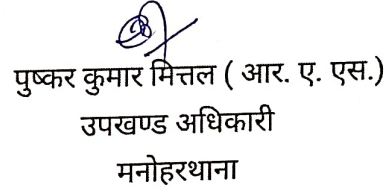 पुष्कर कुमार मित्तल ( आर. ए. एस.)
उपखण्ड अधिकारी
मनोहरथाना